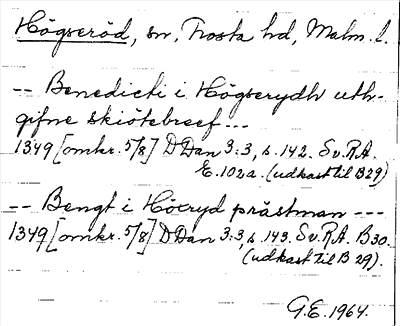 Högseröd, sn, Frosta hd, Malm. l.
-- Benedicti i Högserydh uth-
gifne skiötebreef ---
1349 [omkr. 5/8] DDan 3:3, s. 142. Sv.R.A.
E. 102a. (udkast til B29)
-- Bengt i Höcryd prästman ---
1349 [omkr. 5/8] DDan 3:3, s. 143. Sv.R.A. B30.
(udkast til B 29).
G.E. 1964.